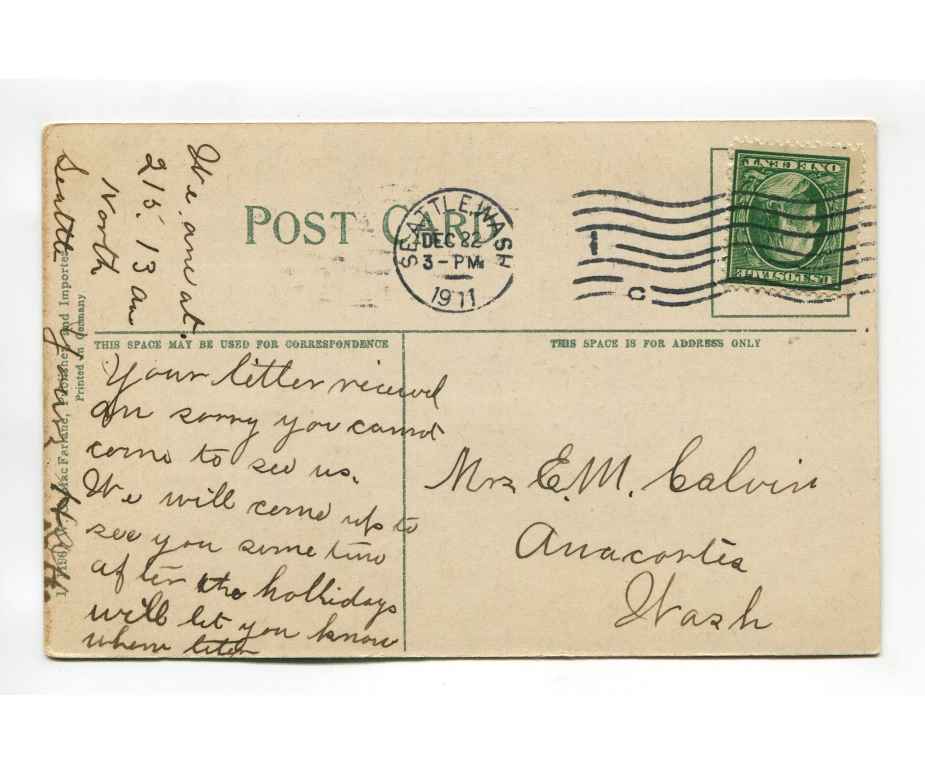 We are at.
215. 13 av
North
Seattle
POST CARD
SEATTLE, WASH
DEC 22
3-PM
1911
1
C
ONE CENT
U.S. POSTAGE
THIS SPACE MAY BE USED FOR CORRESPONDENCE
THIS SPACE IS FOR ADDRESS ONLY
Your letter recieved
am sorry you cannot
come to see us.
We will come up to
see you some time
after the hollidays
will let you know
when later
Mrs E.M. Calvin
Anacortes
Wash
Mac Farlane, Publisher and Importer
Printed in Germany